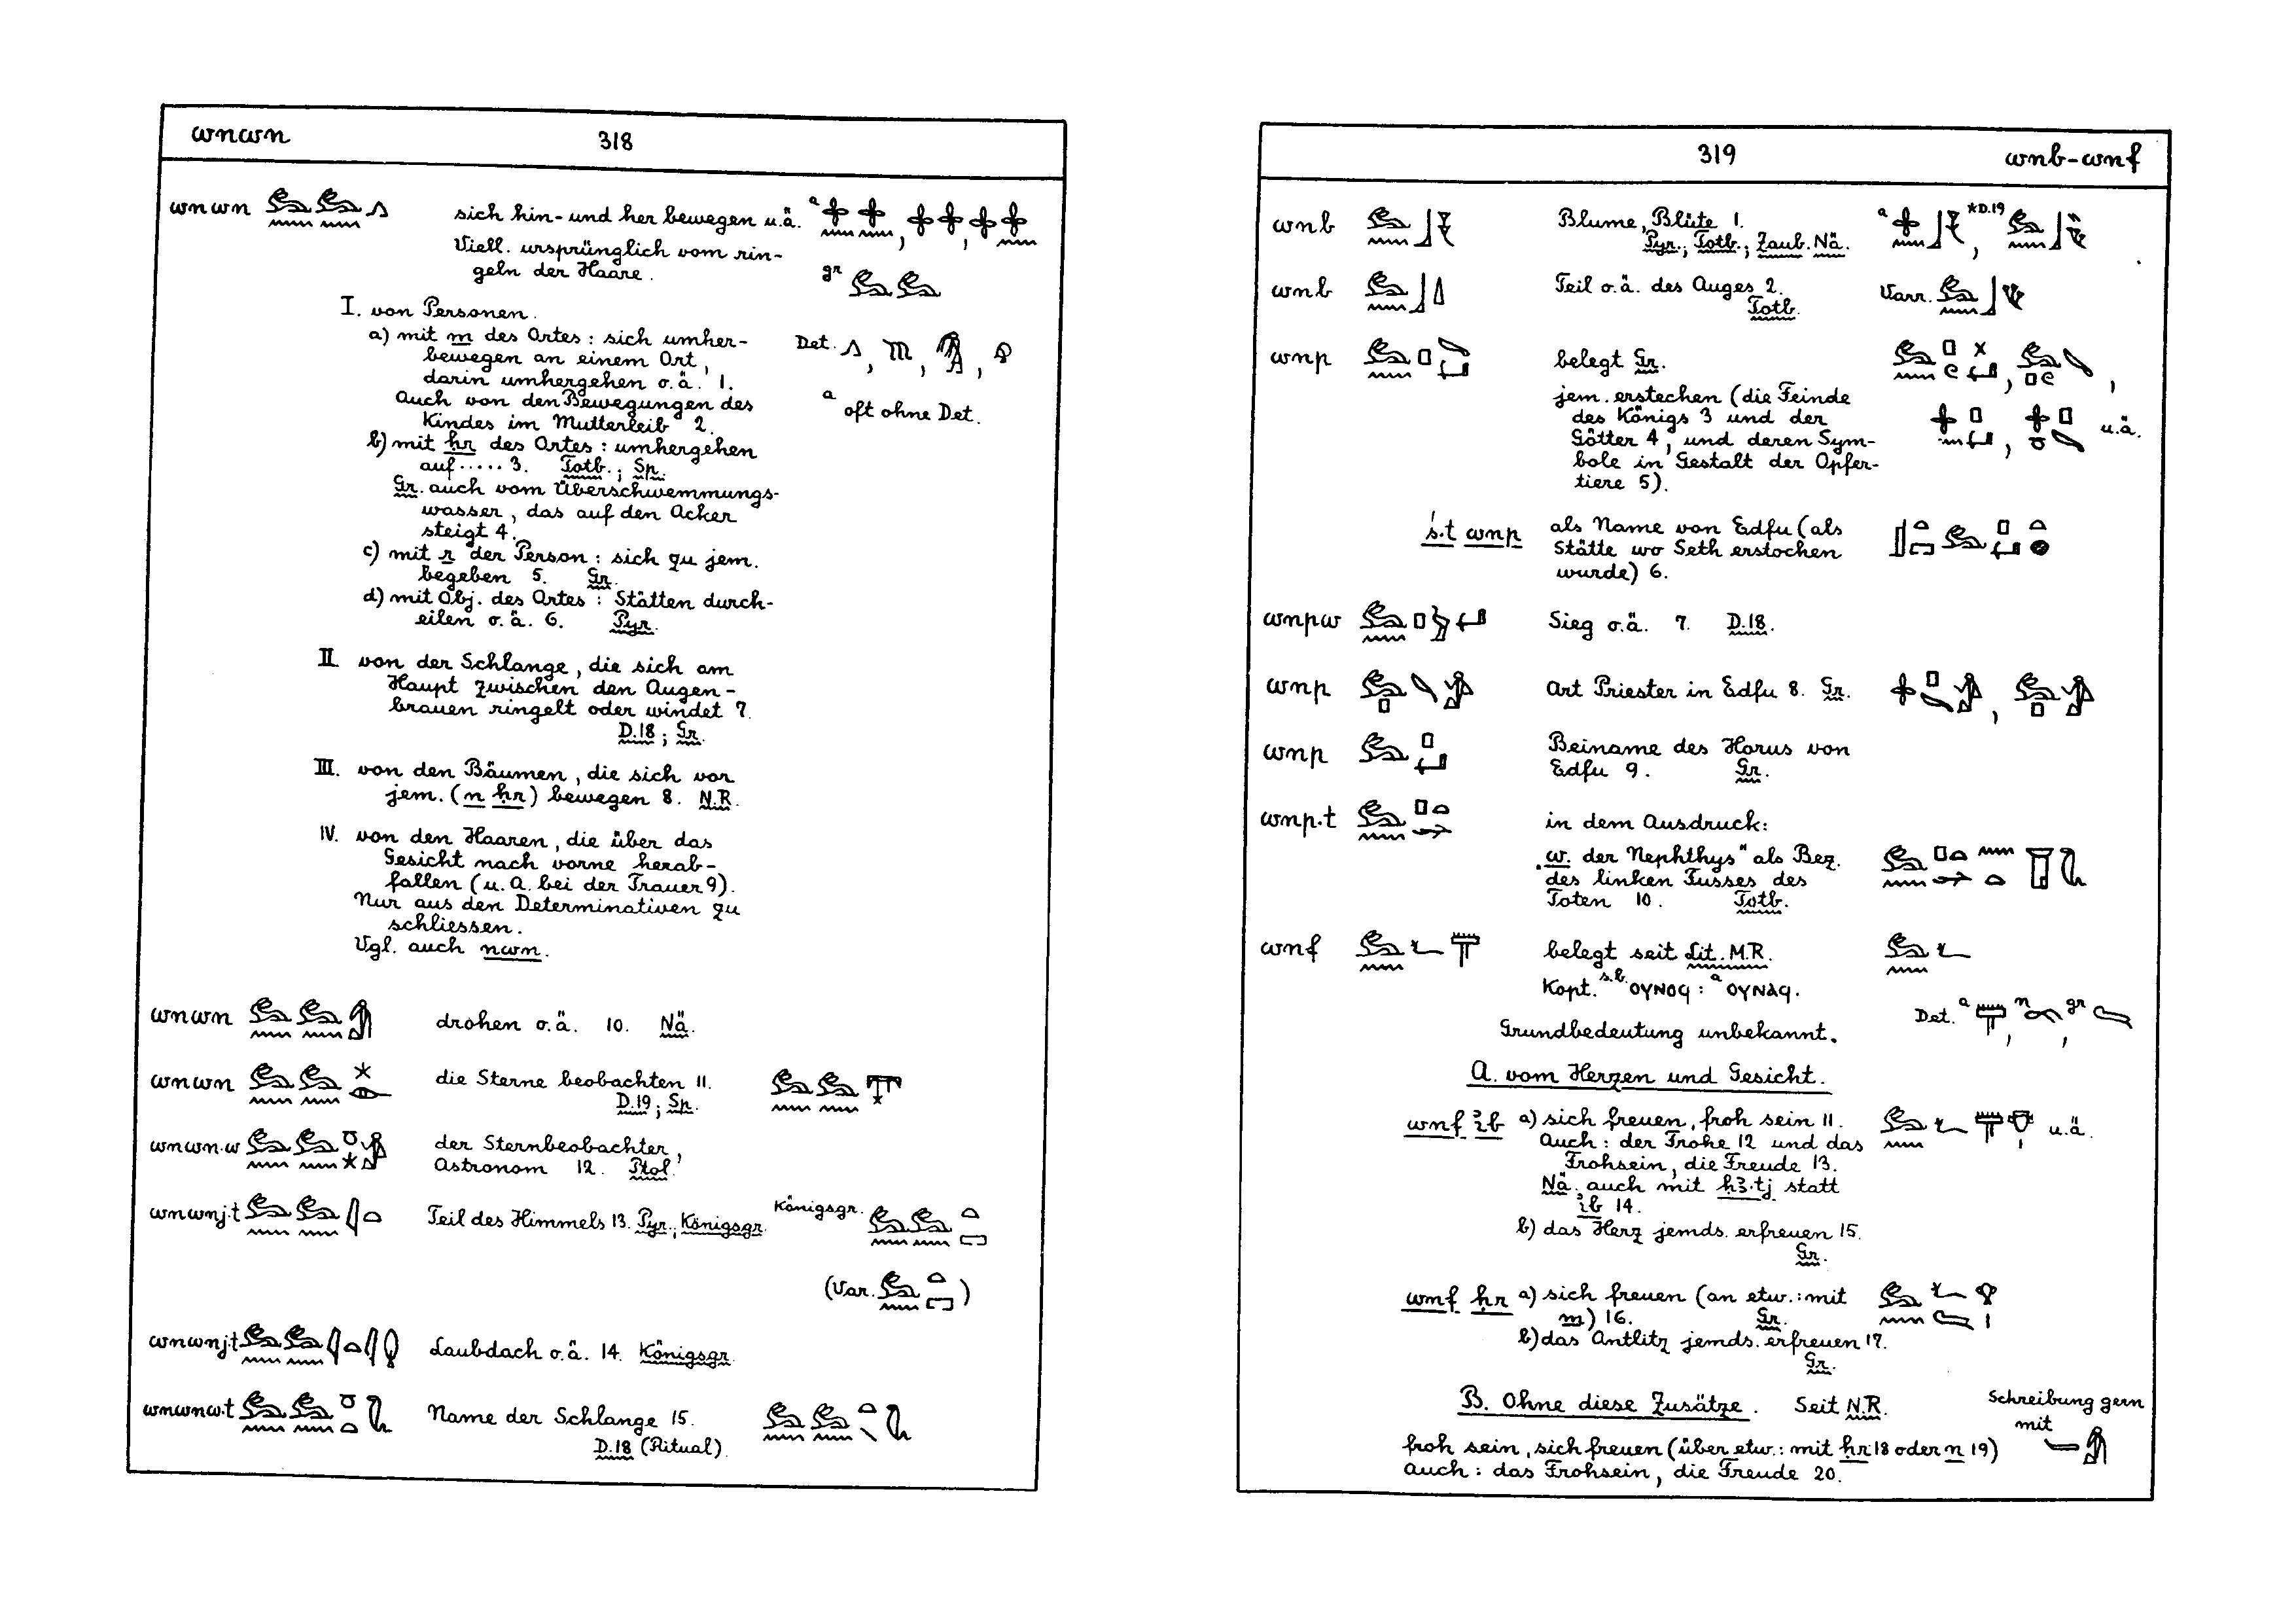 wnwn 318
wnwn sich hin- und her bewegen u.ä. a
Viell. ursprünglich vom rin-
geln der Haare. gr
I. von Personen.
a) mit m des Ortes: sich umher-
bewegen an einem Ort,
darin umhergehen o.ä. 1.
Auch von den Bewegungen des
Kindes im Mutterleib 2.
Det.
a oft ohne Det.
b) mit ḥr des Ortes: umhergehen
auf ..... 3. Totb.; Sp.
Gr. auch vom Überschwemmungs-
wasser, das auf den Acker
steigt 4.
c) mit r der Person: sich zu jem.
begeben 5. Gr.
d) mit Obj. des Ortes: Stätten durch-
eilen o.ä. 6. Pyr.
II. von der Schlange, die sich am
Haupt zwischen den Augen-
brauen ringelt oder windet 7.
D.18; Gr.
III. von den Bäumen, die sich vor
jem. (n ḥr) bewegen 8. N.R.
IV. von den Haaren, die über das
Gesicht nach vorne herab-
fallen (u.a. bei der Trauer 9).
Nur aus den Determinativen zu
schliessen.
Vgl. auch nwn.
wnwn drohen o.ä. 10. Nä.
wnwn die Sterne beobachten 11.
D.19; Sp.
wnwn.w der Sternbeobachter,
Astronom 12. Ptol.
wnwnj.t Teil des Himmels 13. Pyr.; Königsgr. Königsgr.
(Var. )
wnwnj.t Laubdach o.ä. 14. Königsgr.
wnwnw.t Name der Schlange 15.
D.18 (Ritual).
319 wnb-wnf
wnb Blume, Blüte 1. a *D.19
Pyr.; Totb.; Zaub. Nä.
wnb Teil o.ä. des Auges 2. Varr.
Totb.
wnp belegt Gr.
jem. erstechen (die Feinde
des Königs 3 und der
Götter 4, und deren Sym- u.ä.
bole in Gestalt der Opfer-
tiere 5).
ś.t wnp als Name von Edfu (als
Stätte wo Seth erstochen
wurde) 6.
wnpw Sieg o.ä. 7. D.18.
wnp Art Priester in Edfu 8. Gr.
wnp Beiname des Horus von
Edfu 9. Gr.
wnp.t in dem Ausdruck:
„w. der Nephthys" als Bez.
des linken Fusses des
Toten 10. Totb.
wnf belegt seit Lit. M.R.
Kopt. s.b. ⲟⲩⲛⲟϥ : a ⲟⲩⲛⲁϥ.
Det. a , n , gr
Grundbedeutung unbekannt.
A. vom Herzen und Gesicht.
wnf ỉb a) sich freuen, froh sein 11. u.ä.
Auch: der Frohe 12 und das
Frohsein, die Freude 13.
Nä. auch mit ḥꜣ.tj statt
ỉb 14.
b) das Herz jemds. erfreuen 15.
Gr.
wnf ḥr a) sich freuen (an etw.: mit
m) 16. Gr.
b) das Antlitz jemds. erfreuen 17.
Gr.
B. Ohne diese Zusätze. Seit N.R. Schreibung gern
mit
froh sein, sich freuen (über etw.: mit ḥr 18 oder n 19)
Auch: das Frohsein, die Freude 20.